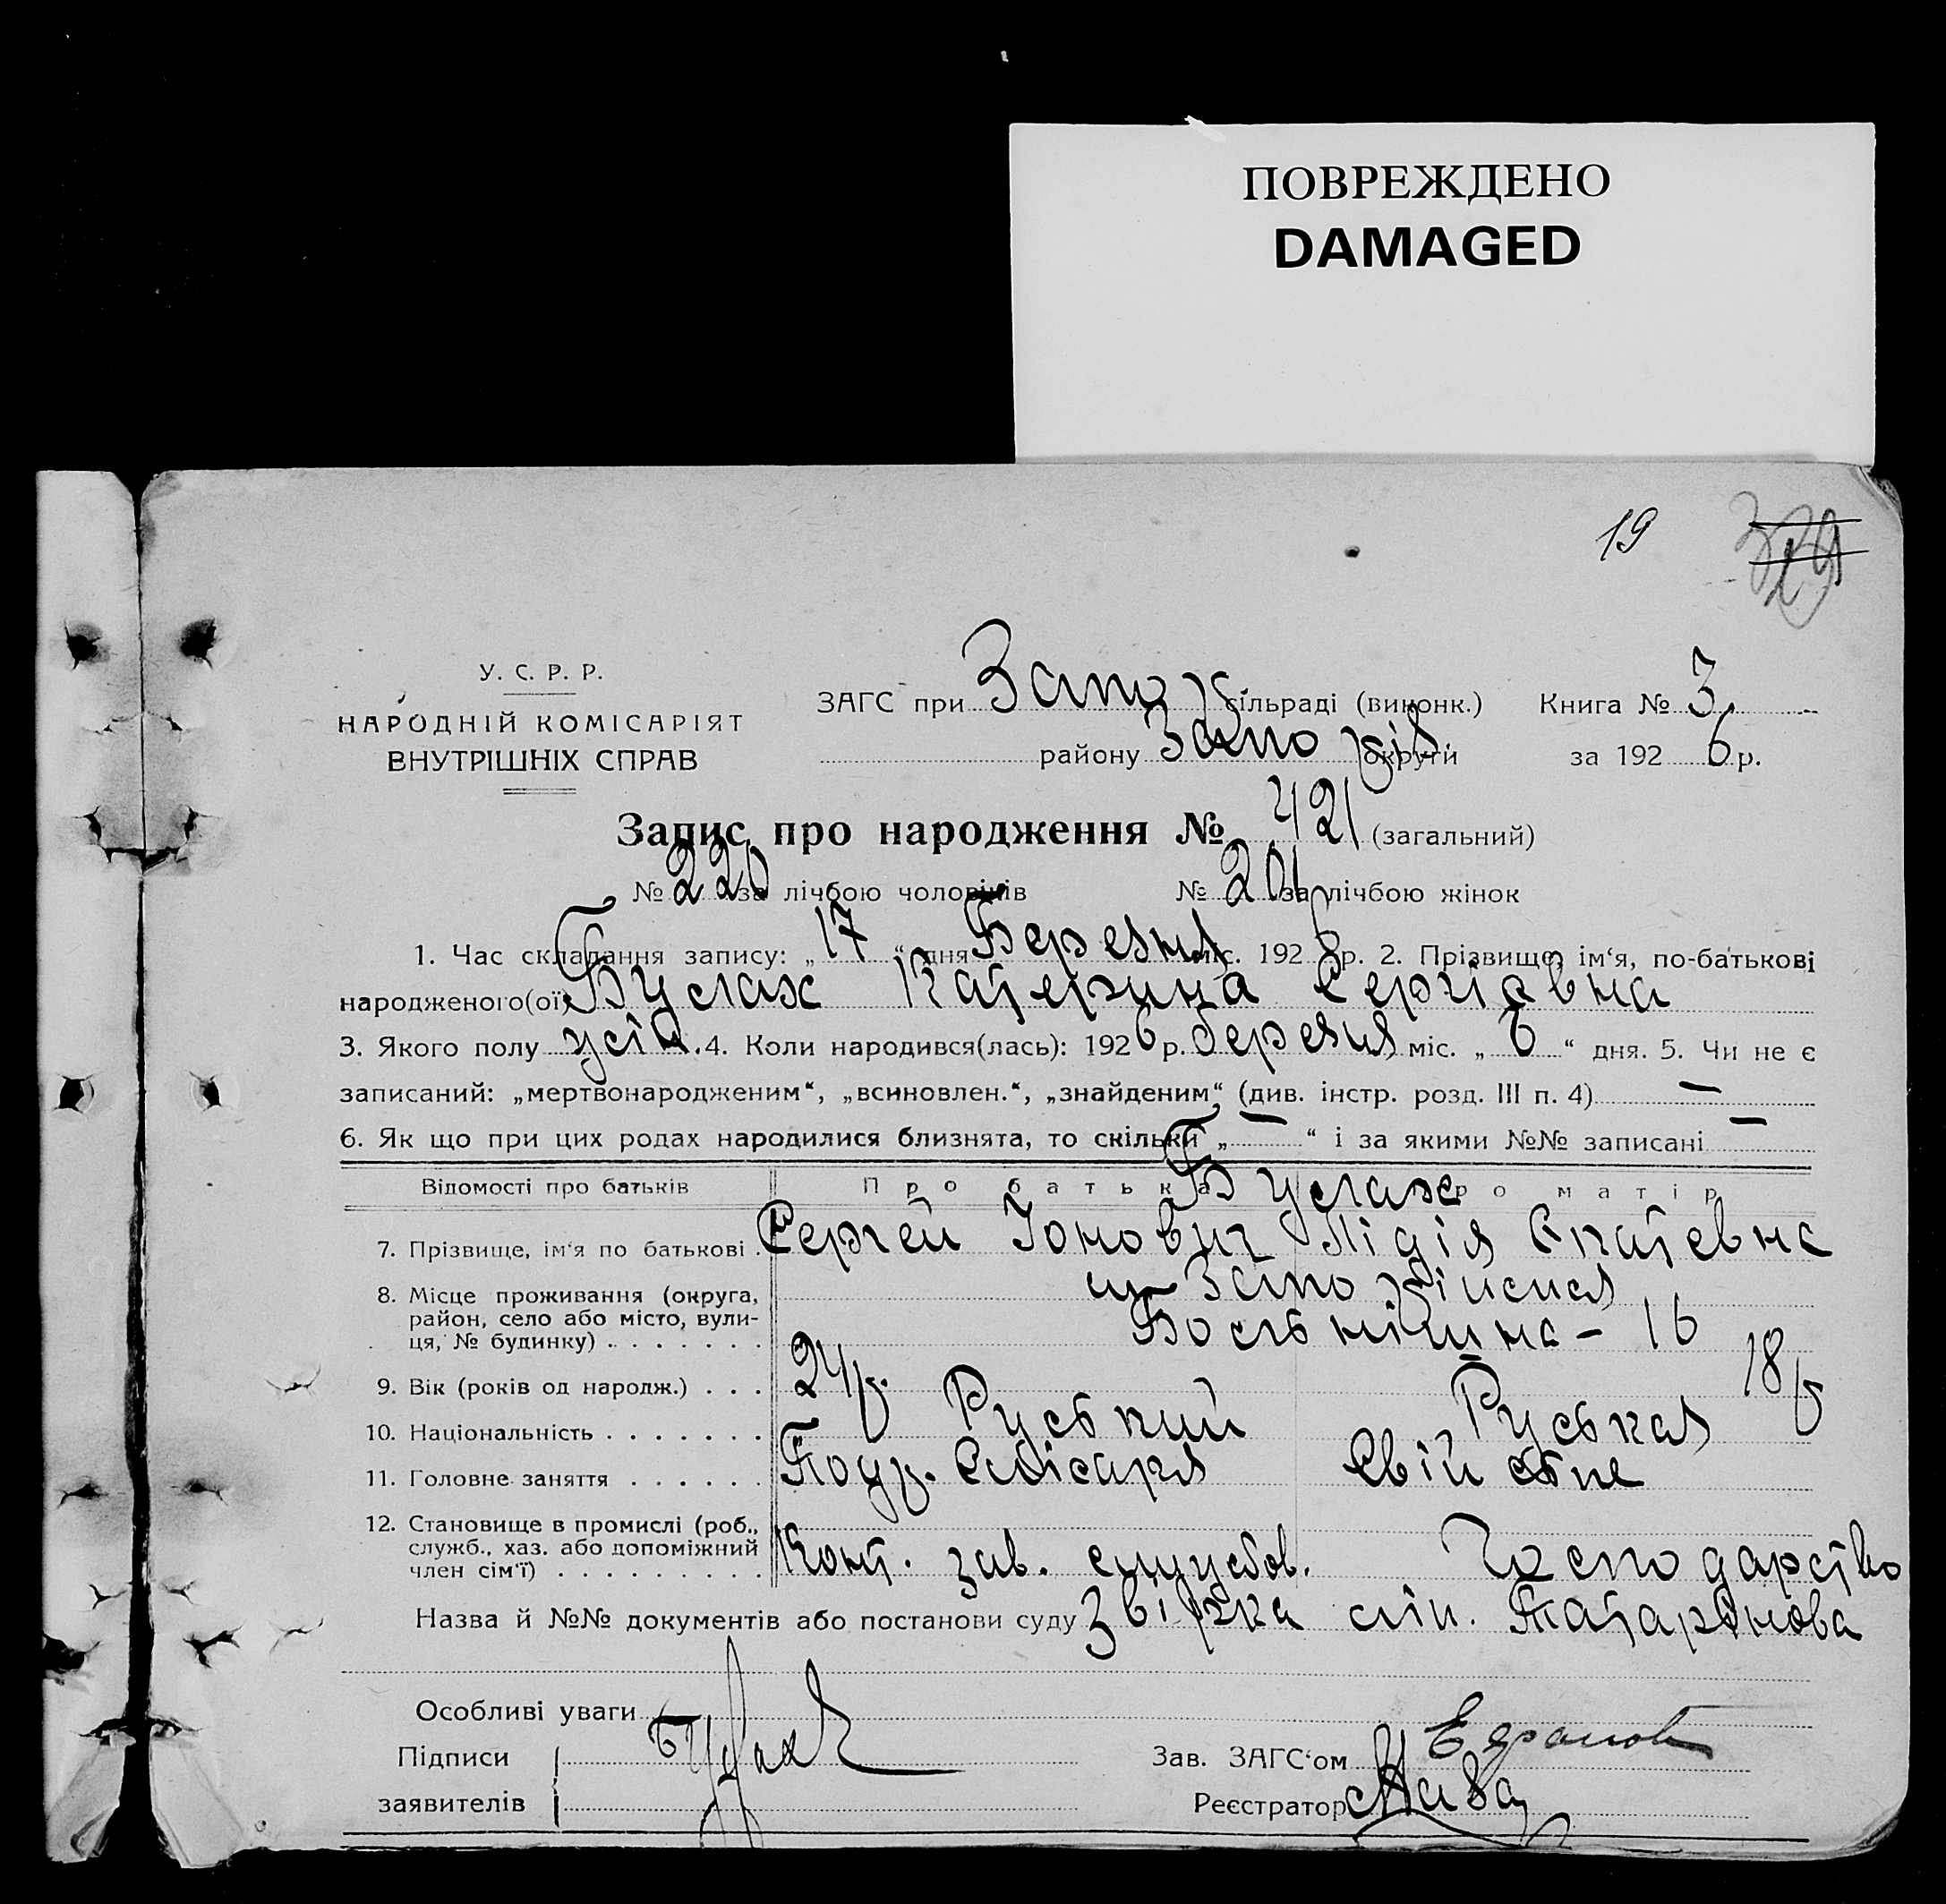 ПОВРЕЖДЕНО
DAMAGED
19
У. С. Р. Р.
НАРОДНІЙ КОМІСАРІЯТ
ВНУТРІШНІХ СПРАВ
ЗАГС при Запо сільраді (виконк.) Книга № 3
району Запо округи за 1926 р.
Запис про народження № 421 (загальний)
№ 220 за лічбою чоловіків № 201 за лічбою жінок
1. Час складання запису: „17“ дня Березня міс. 1926 р. 2. Прізвище, ім‘я, по-батькові
народженого(ої) Буслах Катерина Сергіевна
3. Якого полу 4. Коли народився(лась): 1926 р. березня міс. „6“ дня. 5. Чи не є
записаний: „мертвонародженим“, „всиновлен.“, „знайденим“ (див. інстр. розд. III п. 4) —
6. Як що при цих родах народилися близнята, то скільки „—“ і за якими №№ записані —
Відомості про батьків Про батька Про матір
Буслах
7. Прізвище, ім‘я по батькові . Сергей Іонович Лідія Ипатевна
8. Місце проживання (округа,
район, село або місто, вули-
ця, № будинку) . . . . . . . 16
9. Вік (років од народж.) . . . 24 р. 18 р
10. Національність . . . . . . . Руський Руськая
11. Головне заняття . . . . . . Подр. Слісаря
12. Становище в промислі (роб.,
служб., хаз. або допоміжний
член сім‘ї) . . . . . . . . . Конт. зав. Господарство
Назва й №№ документів або постанови суду
Особливі уваги
Підписи Буслах Зав. ЗАГС‘ом
заявителів Реєстратор